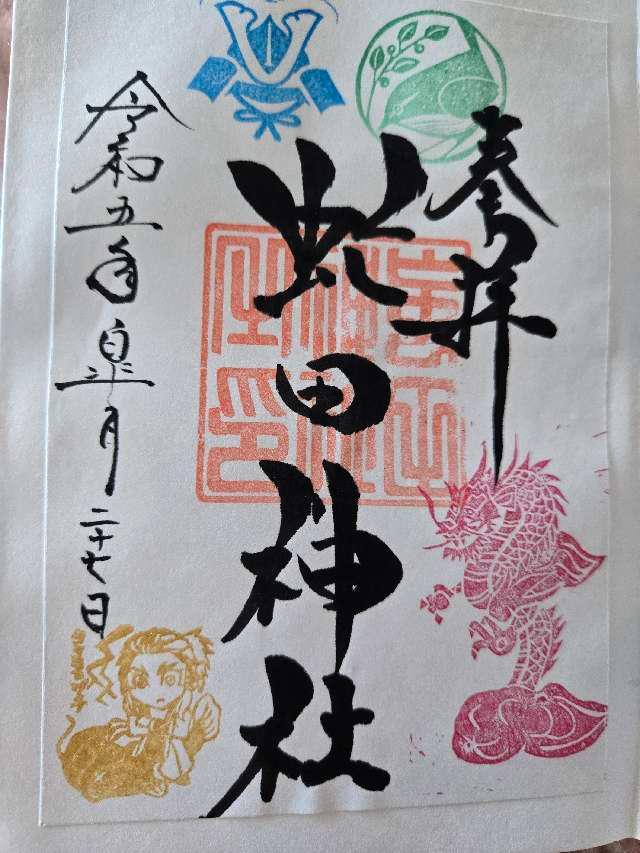 奉拝
虻田神社
令和五年皐月二十七日